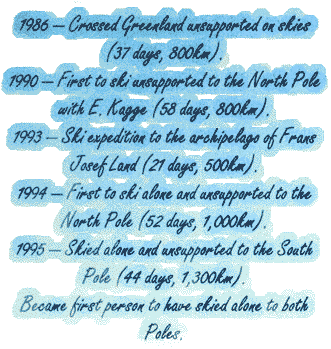 1986 – Crossed Greenland unsupported on skies
(37 days, 800km).
1990 – First to ski unsupported to the North Pole
with E. Kagge (58 days, 800km).
1993 – Ski expedition to the archipelago of Frans
Josef Land (21 days, 500km).
1994 – First to ski alone and unsupported to the
North Pole (52 days, 1,000km).
1995 – Skied alone and unsupported to the South
Pole (44 days, 1,300km).
Became first person to have skied alone to both
Poles.